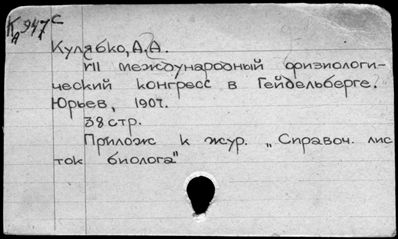 К 947 с
А
Кулябко, А.А.
VII международный физиологи-
ческий конгресс в Гейдельберге.
Юрьев, 1907.
38 стр.
Прилож к жур. „Справоч. лис
ток биолога"